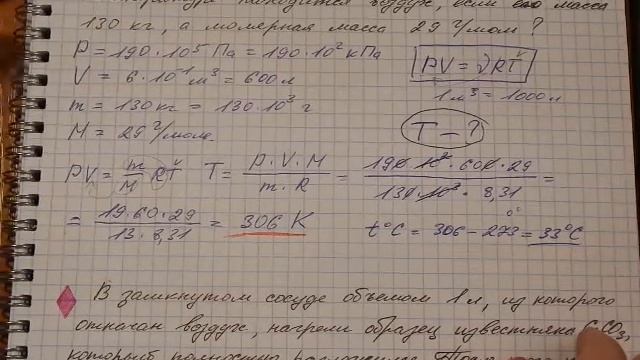 находится воздух, если его масса
130 кг, а молярная масса 29 г/моль?
P = 190·10⁵ Па = 190·10² кПа
V = 6·10⁻¹ м³ = 600 л
PV = νRT
1 м³ = 1000 л
m = 130 кг = 130·10³ г
M = 29 г/моль
T – ?
PV = m/M RT T = P·V·M / m·R = 190·10²·600·29 / 130·10³·8,31 =
= 19·60·29 / 13·8,31 = 306 К
t°C = 306 – 273 = 33°C
В замкнутом сосуде объемом 1 л, из которого
откачан воздух, нагрели образец известняка CaCO₃,
который полностью